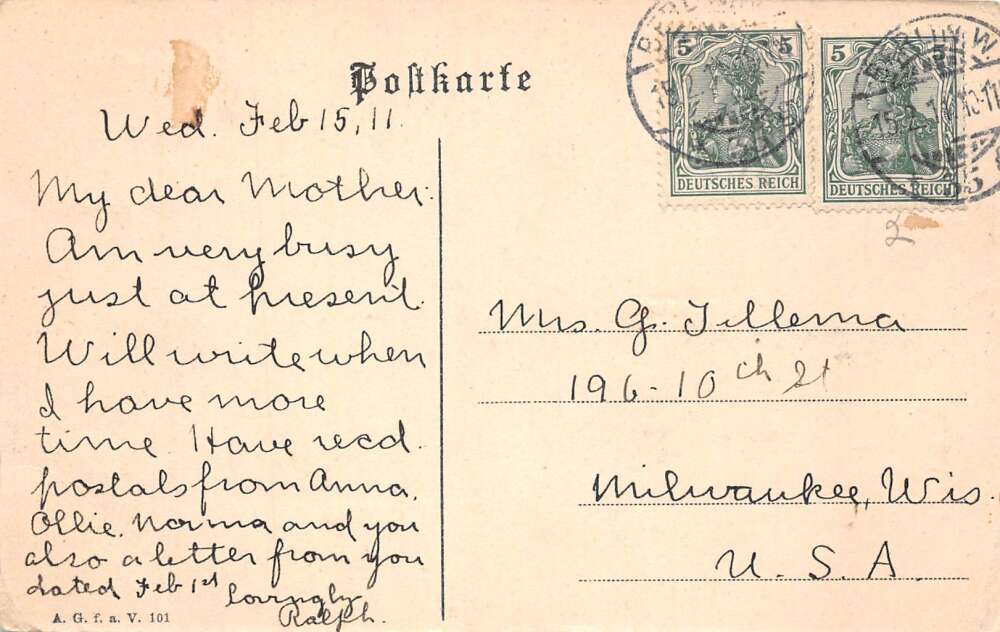 Postkarte
5 5
DEUTSCHES REICH
5 5
DEUTSCHES REICH
BERLIN W
15.2. 11 10-11
35
2
Wed. Feb 15, 11.
My dear Mother:
Am very busy
just at present.
Will write when
I have more
time. Have recd.
postals from Anna,
Ollie, Norma and you
also a letter from you
dated Feb 1st
Lovingly
Ralph.
A. G. f. a. V. 101
Mrs. G. Tillema
196-10th St
Milwaukee, Wis.
U. S. A.